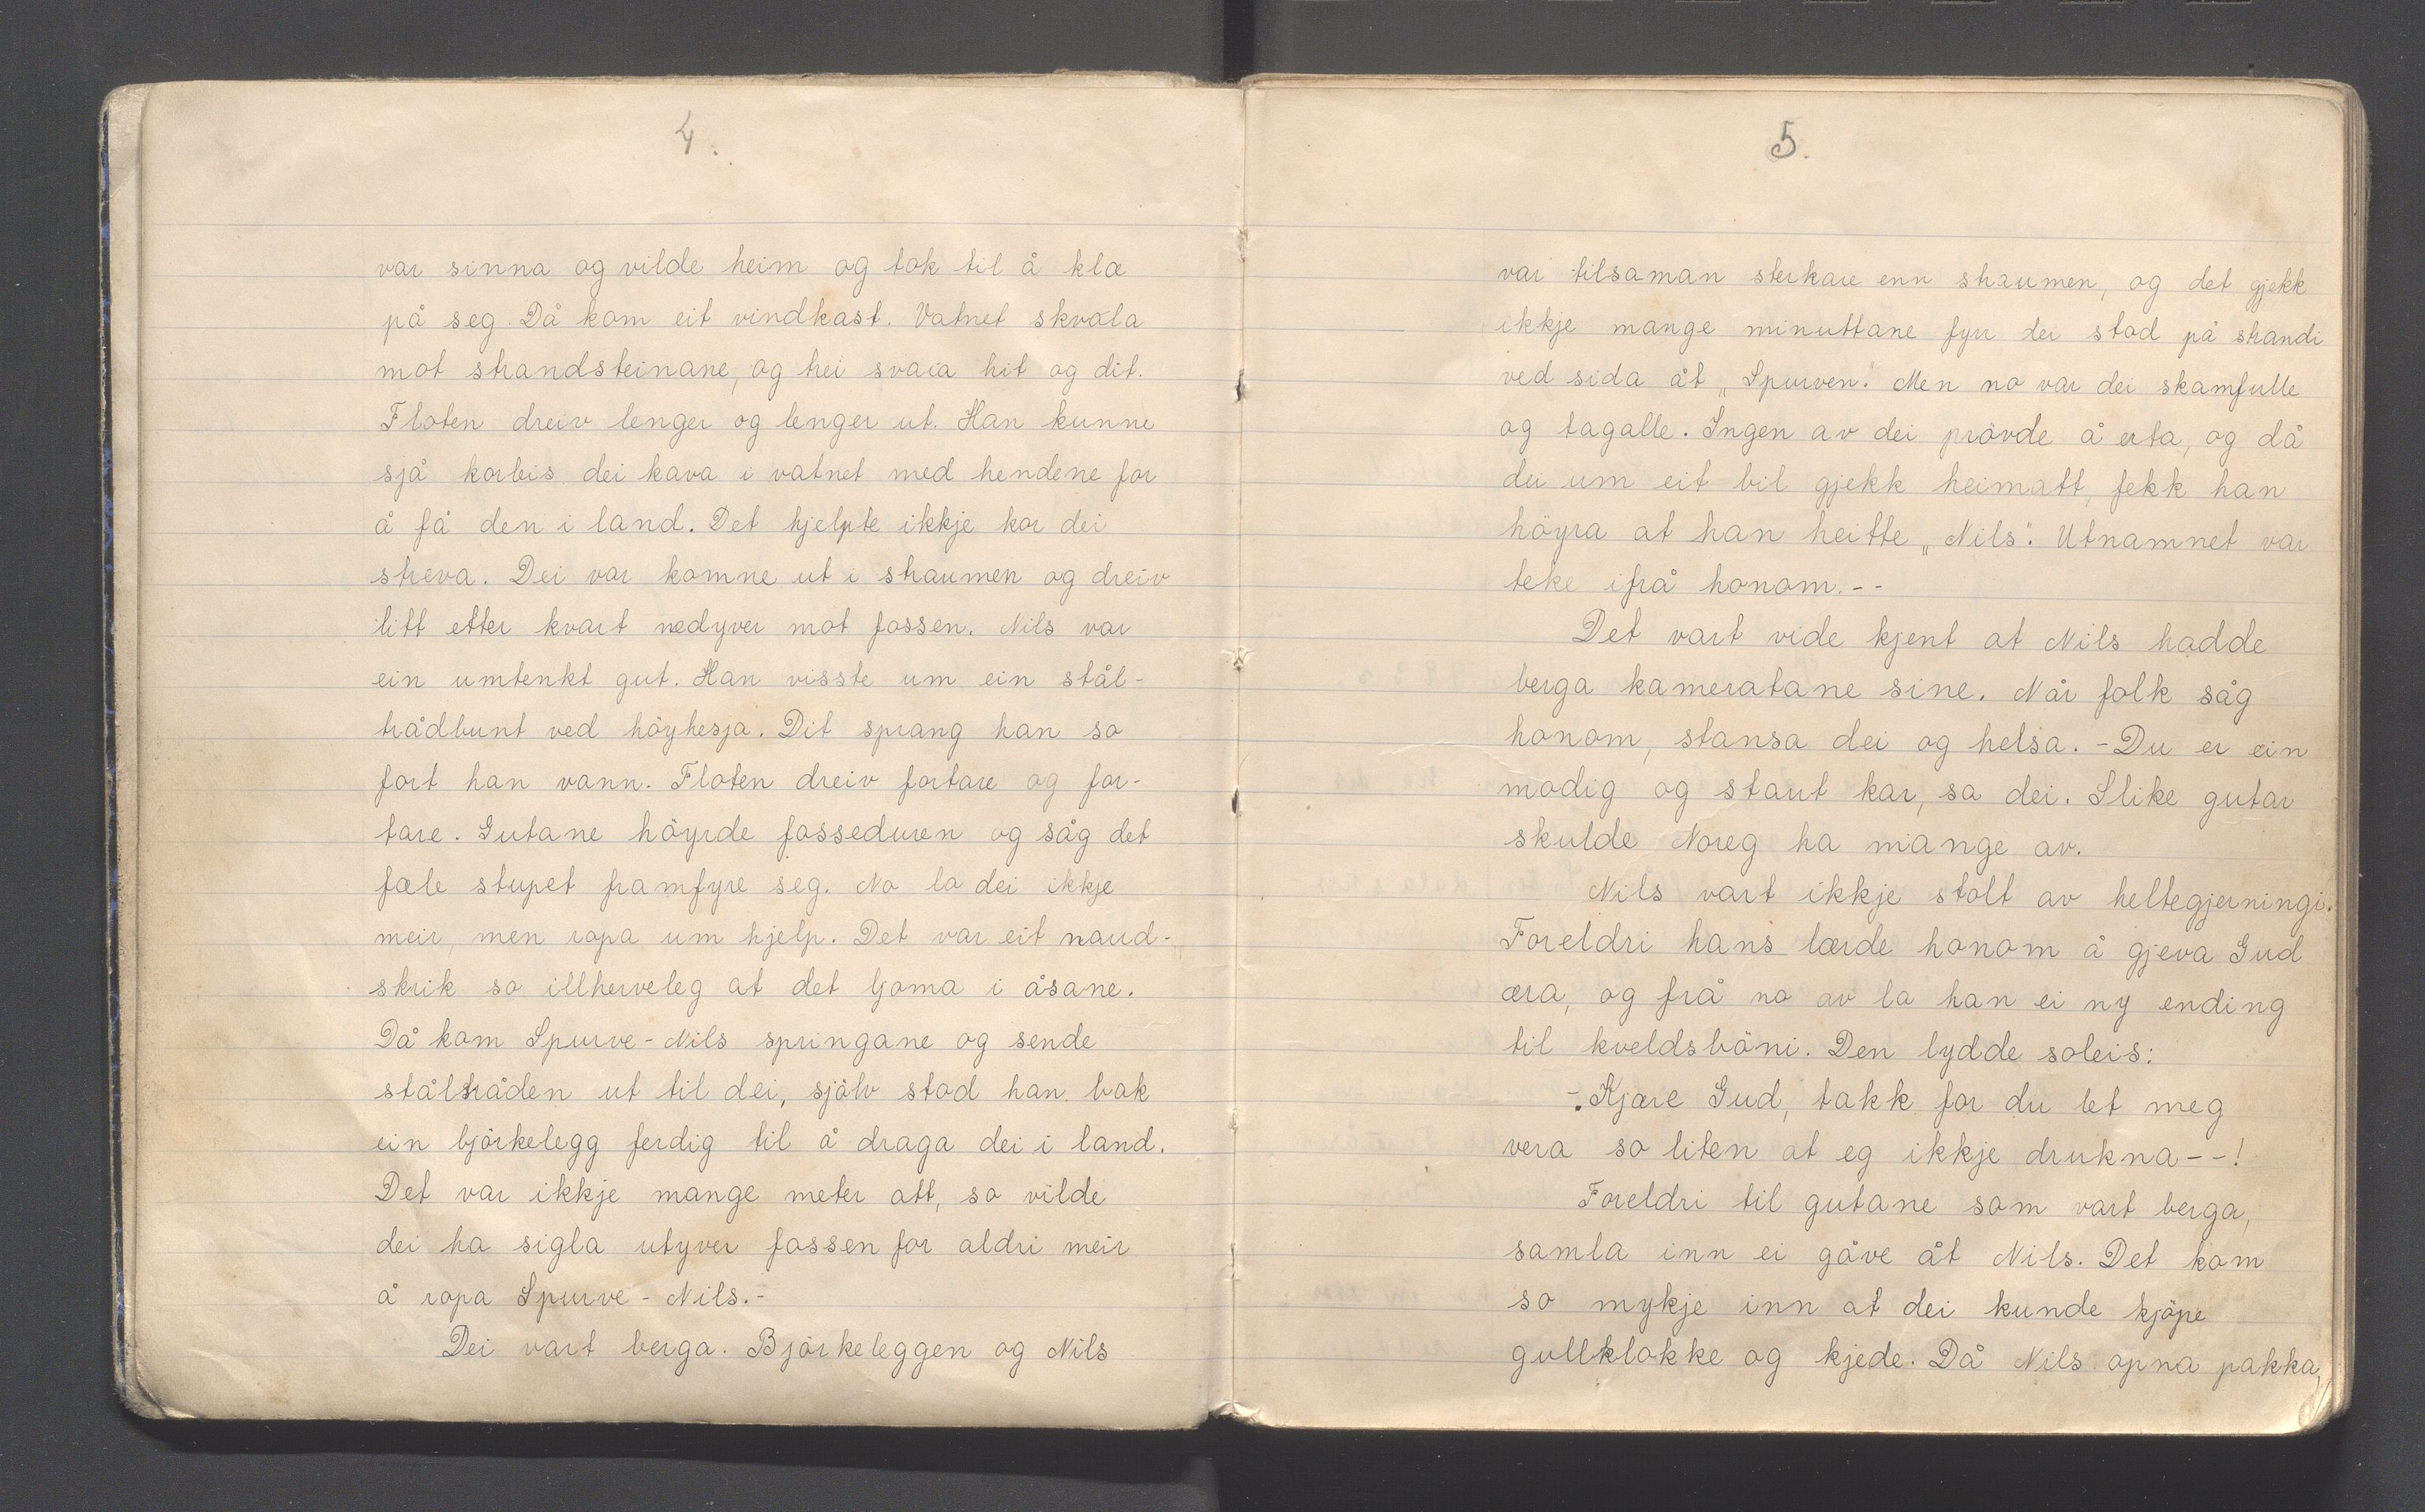 4.
var sinna og vilde heim og tok til å klæ
på seg. Då kom eit vindkast. Vatnet skvala
mot strandsteinane, og trei svaia hit og dit.
Floten dreiv lenger og lenger ut. Han kunne
sjå korleis dei kava i vatnet med hendene for
å få den i land. Det hjelpte ikkje kor dei
streva. Dei var komne ut i straumen og dreiv
litt etter kvart nedyver mot fossen. Nils var
ein umtenkt gut. Han visste um ein stål-
trådbunt ved höyhesja. Dit sprang han so
fort han vann. Floten dreiv fortare og for-
tare. Gutane höyrde fosseduren og såg det
fæle stupet framfyre seg. No lo dei ikkje
meir, men ropa um hjelp. Det var eit naud-
skrik so illherveleg at det ljoma i åsane.
Då kom Spurve-Nils springane og sende
ståltråden ut til dei, sjölv stod han bak
ein björkelegg ferdig til å draga dei i land.
Det var ikkje mange meter att, so vilde
dei ha sigla utyver fossen for aldri meir
å ropa Spurve-Nils.-
Dei vart berga. Björkeleggen og Nils
5.
var tilsaman sterkare enn straumen, og det gjekk
ikkje mange minuttane fyrr dei stod på strandi
ved sida åt „Spurven." Men no var dei skamfulle
og tagalle. Ingen av dei prövde å erta, og då
dei um eit bil gjekk heimatt, fekk han
höyra at han heitte „Nils". Utnamnet var
teke ifrå honom.--
Det vart vide kjent at Nils hadde
berga kameratane sine. Når folk såg
honom, stansa dei og helsa. -Du er ein
modig og staut kar, sa dei. Slike gutar
skulde Noreg ha mange av.
Nils vart ikkje stolt av heltegjerningi.
Foreldri hans lærde honom å gjeva Gud
æra, og frå no av la han ei ny ending
til kveldsböni. Den lydde soleis:
-. Kjære Gud, takk for du let meg
vera so liten at eg ikkje drukna--!
Foreldri til gutane som vart berga,
samla inn ei gåve åt Nils. Det kom
so mykje inn at dei kunde kjöpe
gullklokke og kjede. Då Nils opna pakka,